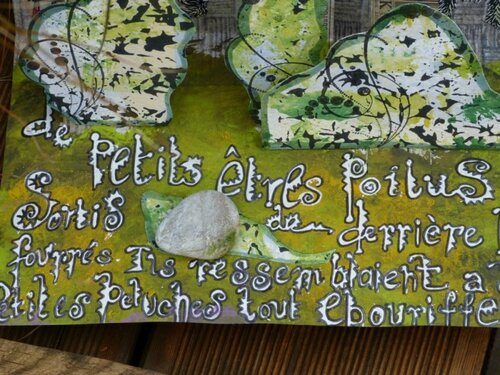 de Petits êtres Poilus
Sortis de derrière
fourrés Ils ressemblaient a
Petites Peluches tout ebouriffe